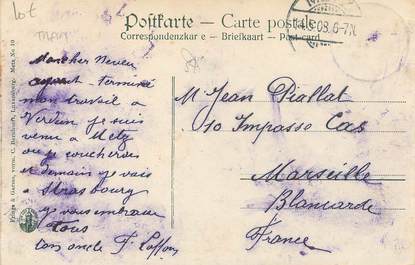 lot
TRAM
Postkarte – Carte postale
Correspondenzkar e – Briefkaart – Post-card
.08. 6-7N
Mon cher Neveu
ayant terminé
mon travail a
Verdun je suis
venu a Metz
ou je coucherai
et demain je vais
a Strasbourg
je vous embrasse
tous
ton oncle
M Jean Piollat
10 Impasse Cas
Marseille
Blancarde
France
Metz No 10